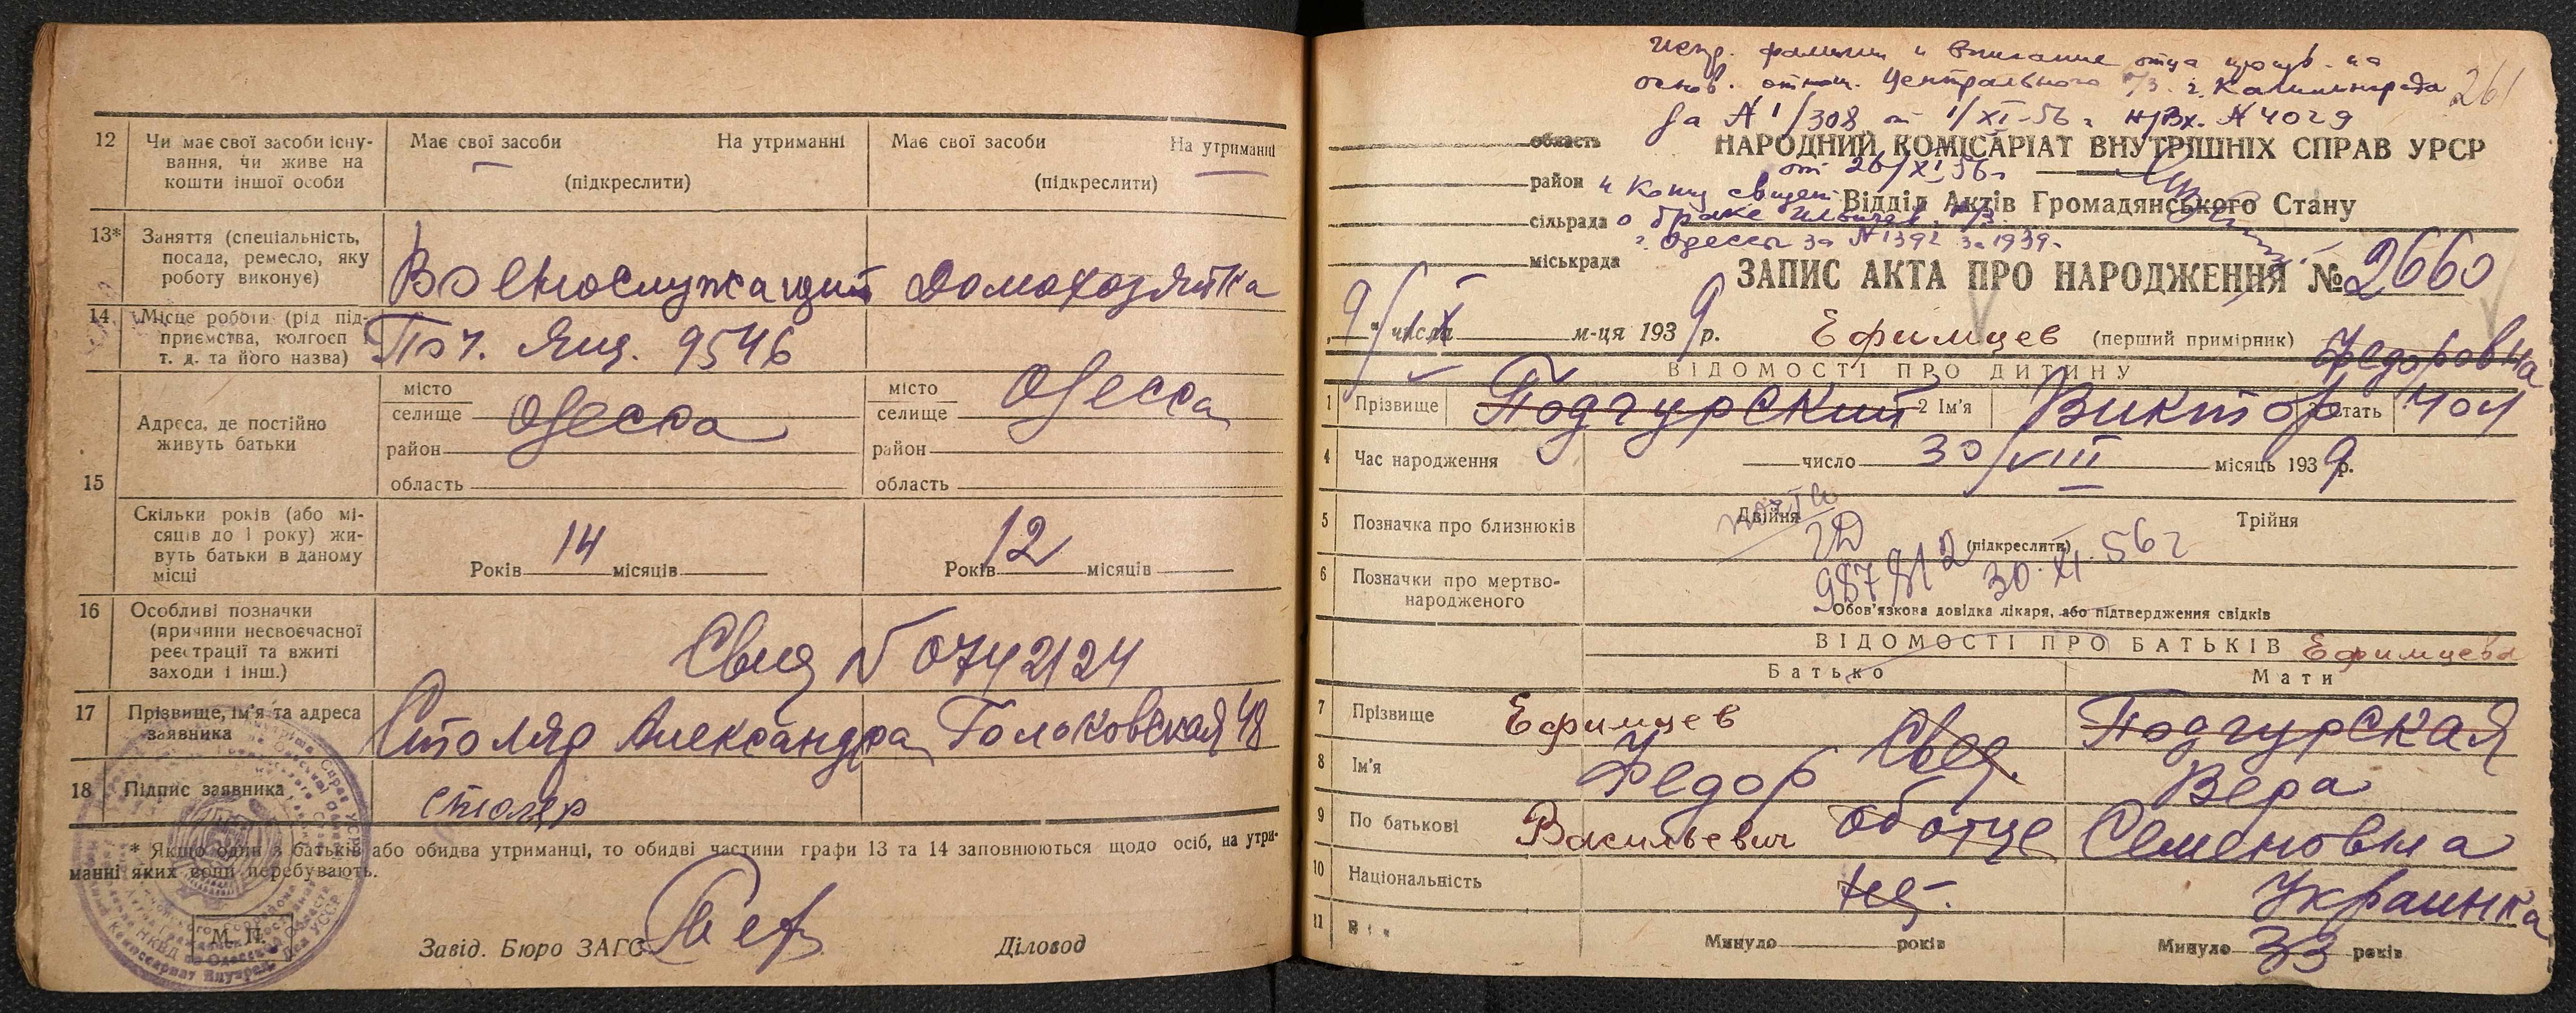 12 Чи має свої засоби існу-
вання, чи живе на
кошти іншої особи
Має свої засоби На утриманні
(підкреслити)
Має свої засоби На утриманні
(підкреслити)
13* Заняття (спеціальність,
посада, ремесло, яку
роботу виконує)
Военнослужащий Домохозяйка
14 Місце роботи (рід під-
приємства, колгосп і
т. д. та його назва)
Поч. Ящ. 9546
15 Адреса, де постійно
живуть батьки
місто
селище Одесса
район
область
місто
селище Одесса
район
область
Скільки років (або мі-
сяців до 1 року) жи-
вуть батьки в даному
місці
Років 14 місяців
Років 12 місяців
16 Особливі позначки
(причини несвоєчасної
реєстрації та вжиті
заходи і інш.)
Свид № 0742124
17 Прізвище, ім'я та адреса
заявника
Столяр Александра
18 Підпис заявника
Столяр
* Якщо один з батьків або обидва утриманці, то обидві частини графи 13 та 14 заповнюються щодо осіб, на утри-
манні яких вони перебувають.
М. П.
Завід. Бюро ЗАГС
Діловод
Испр. фамилии и вписание отца произв. на
основ. отнош. Центрального г. Калининграда
за № 1/308 от 1/XI-56 г Вх. № 4029
от 26/XI 56 г
и копии свидет
о браке
г. Одессы за № 1392 за 1939 г
261
область
район
сільрада
міськрада
НАРОДНИЙ КОМІСАРІАТ ВНУТРІШНІХ СПРАВ УРСР
Відділ Актів Громадянського Стану
ЗАПИС АКТА ПРО НАРОДЖЕННЯ № 2660
9 " числа IX м-ця 1939 р.
Ефимцев (перший примірник) Федоровна
ВІДОМОСТІ ПРО ДИТИНУ
1 Прізвище Подгурский 2 Ім'я Виктор 3 Стать чол
4 Час народження число 30/VIII місяць 1939 р.
5 Позначка про близнюків Двійня Трійня
(підкреслити)
987812 30.XI.56 г
6 Позначки про мертво-
народженого
Обов'язкова довідка лікаря, або підтвердження свідків
ВІДОМОСТІ ПРО БАТЬКІВ Ефимцева
Батько Мати
7 Прізвище Ефимцев Подгурская
8 Ім'я Федор Свед. Вера
9 По батькові Васильевич об отце Семеновна
10 Національність нет. Украинка
11 Вік
Минуло років
Минуло 33 років